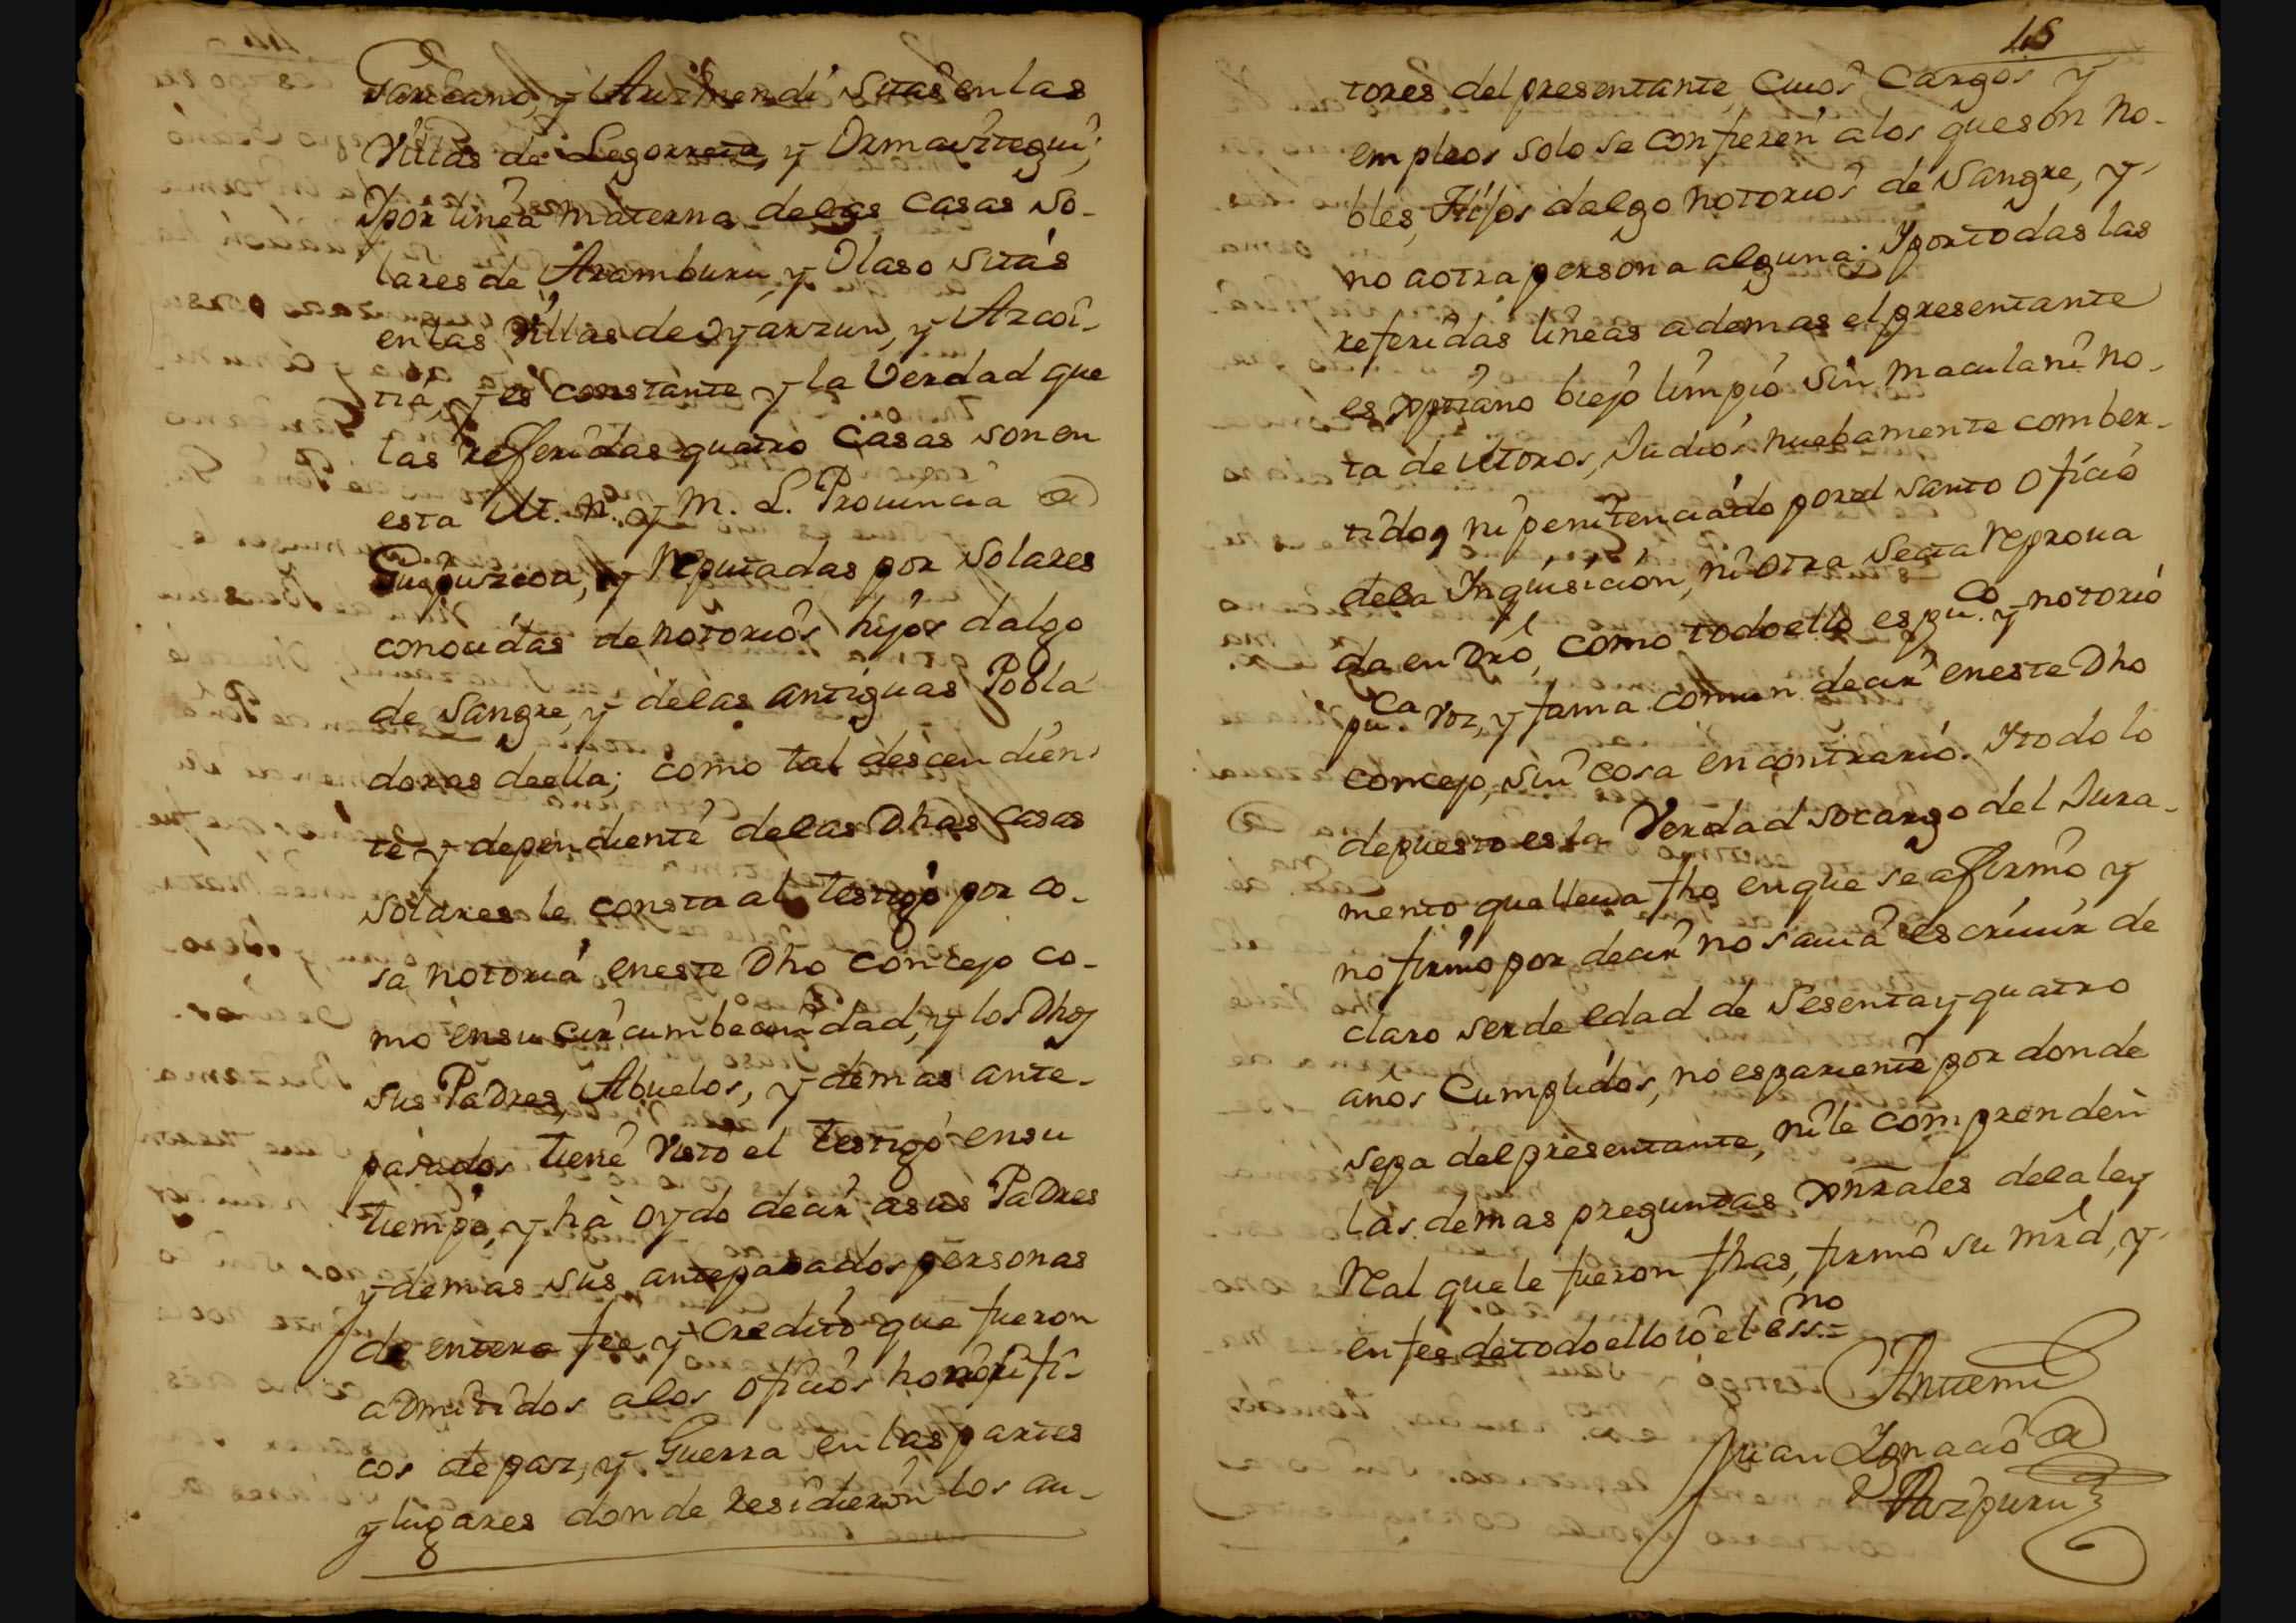 Garicano, y Aurmendi Sitas en las
Villas de Legorreta, y Ormaiztegui;
Ypor linea materna delas Casas So-
lares de Aramburu, y Olaso Sitas
enlas Villas de Oyarzun, y Azcoi-
tia, y es constante y la Verdad que
las refferidas quatro Casas son en
esta M. N. y M. L. Provincia de
Guipuzcoa, y Reputadas por Solares
conocidas de notorios hijos dalgo
de Sangre, y delas antiguas Pobla
doras deella; como tal descendien-
te y dependiente delas Dhas Casas
Solares le consta al testigo por co-
sa notoria eneste Dho Concejo co-
mo ensu circumbecindad, y los Dhos
sus Padres, Abuelos, y demas ante-
pasados tiene Visto el testigo ensu
tiempo, y ha oydo decir asus Padres
y demas sus antepasados personas
de entera fee y Credito que fueron
admitidos alos oficios honorifi-
cos de paz, y Guerra en las partes
y lugares donde residieron los au-
45
tores del presentante, Cuios Cargos y
empleos solo se confieren alos queson No-
bles, Hijos dalgo notorios de Sangre, y
no aotra persona alguna; Y portodas las
referidas lineas ademas el presentante
es xptiano biejo limpio sin macula ni no-
ta de Moros, Judios nuebamente comber-
tidos, ni penitenciado porel Santo Oficio
dela Inquisicion, ni otra Secta reprova
da en Dro, como todo ello es pu.co y notorio
pu.ca voz, y fama comun decir eneste Dho
concejo, sin cosa encontrario. Y todo lo
depuesto es la Verdad so cargo del Jura-
mento quelleva fho, en que se affirmo y
no firmo por decir no savia escrivir de
claro serde edad de Sesentay quatro
años Cumplidos, no es pariente por donde
sepa del presentante, ni le comprenden
las demas preguntas xnrales dela ley
Real que le fueron fhas, firmó su mrd, y
en fee detodoello io el ess.no =
Antemi
Juan Ignacio de
Aizpuru